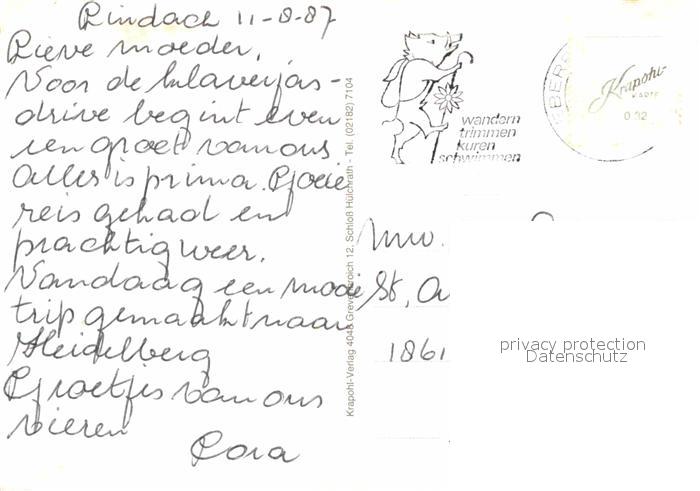 Lindach 11-8-87
Lieve moeder,
Voor de klaverjas-
drive begint even
een groet van ons.
Alles is prima. Goeie
reis gehad en
prachtig weer.
Vandaag een mooie
trip gemaakt naar
Heidelberg
Groetjes van ons
vieren
Cora
Krapohl-Verlag 4048 Grevenbroich 12, Schloß Hülchrath - Tel. (02182) 7104
wandern
trimmen
kuren
schwimmen
EBER
Krapohl-
KARTE
0.92
Mw.
St. A
1861
privacy protection
Datenschutz